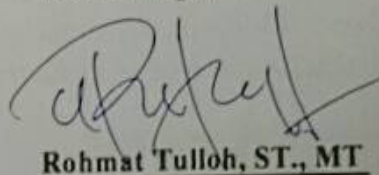 Rohmat Tulloh, ST., MT